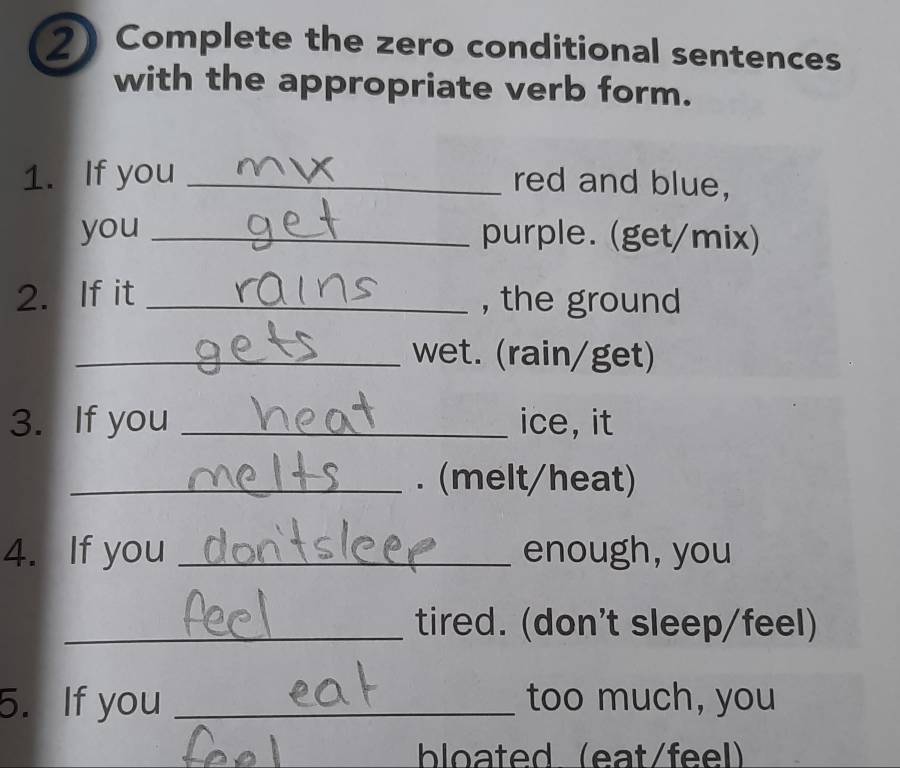 2 Complete the zero conditional sentences
with the appropriate verb form.
1. If you mix red and blue,
you get purple. (get/mix)
2. If it rains, the ground
gets wet. (rain/get)
3. If you heat ice, it
melts. (melt/heat)
4. If you don't sleep enough, you
feel tired. (don't sleep/feel)
5. If you eat too much, you
feel bloated. (eat/feel)